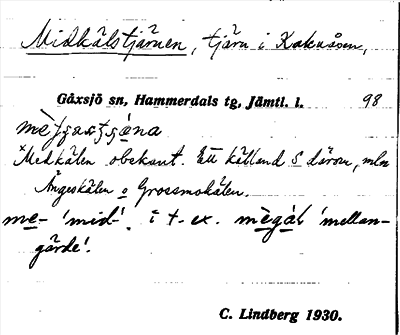 Midkälstjärnen, tjärn i Kakuåsen,
Gåxsjö sn, Hammerdals tg, Jämtl. l. 98
×Medkälen obekant. Ett källand S därom, mln
Ångeskälen o Grossmokälen.
me- 'mid-'. i t. ex. mègál 'mellan-
gärde'.
C. Lindberg 1930.